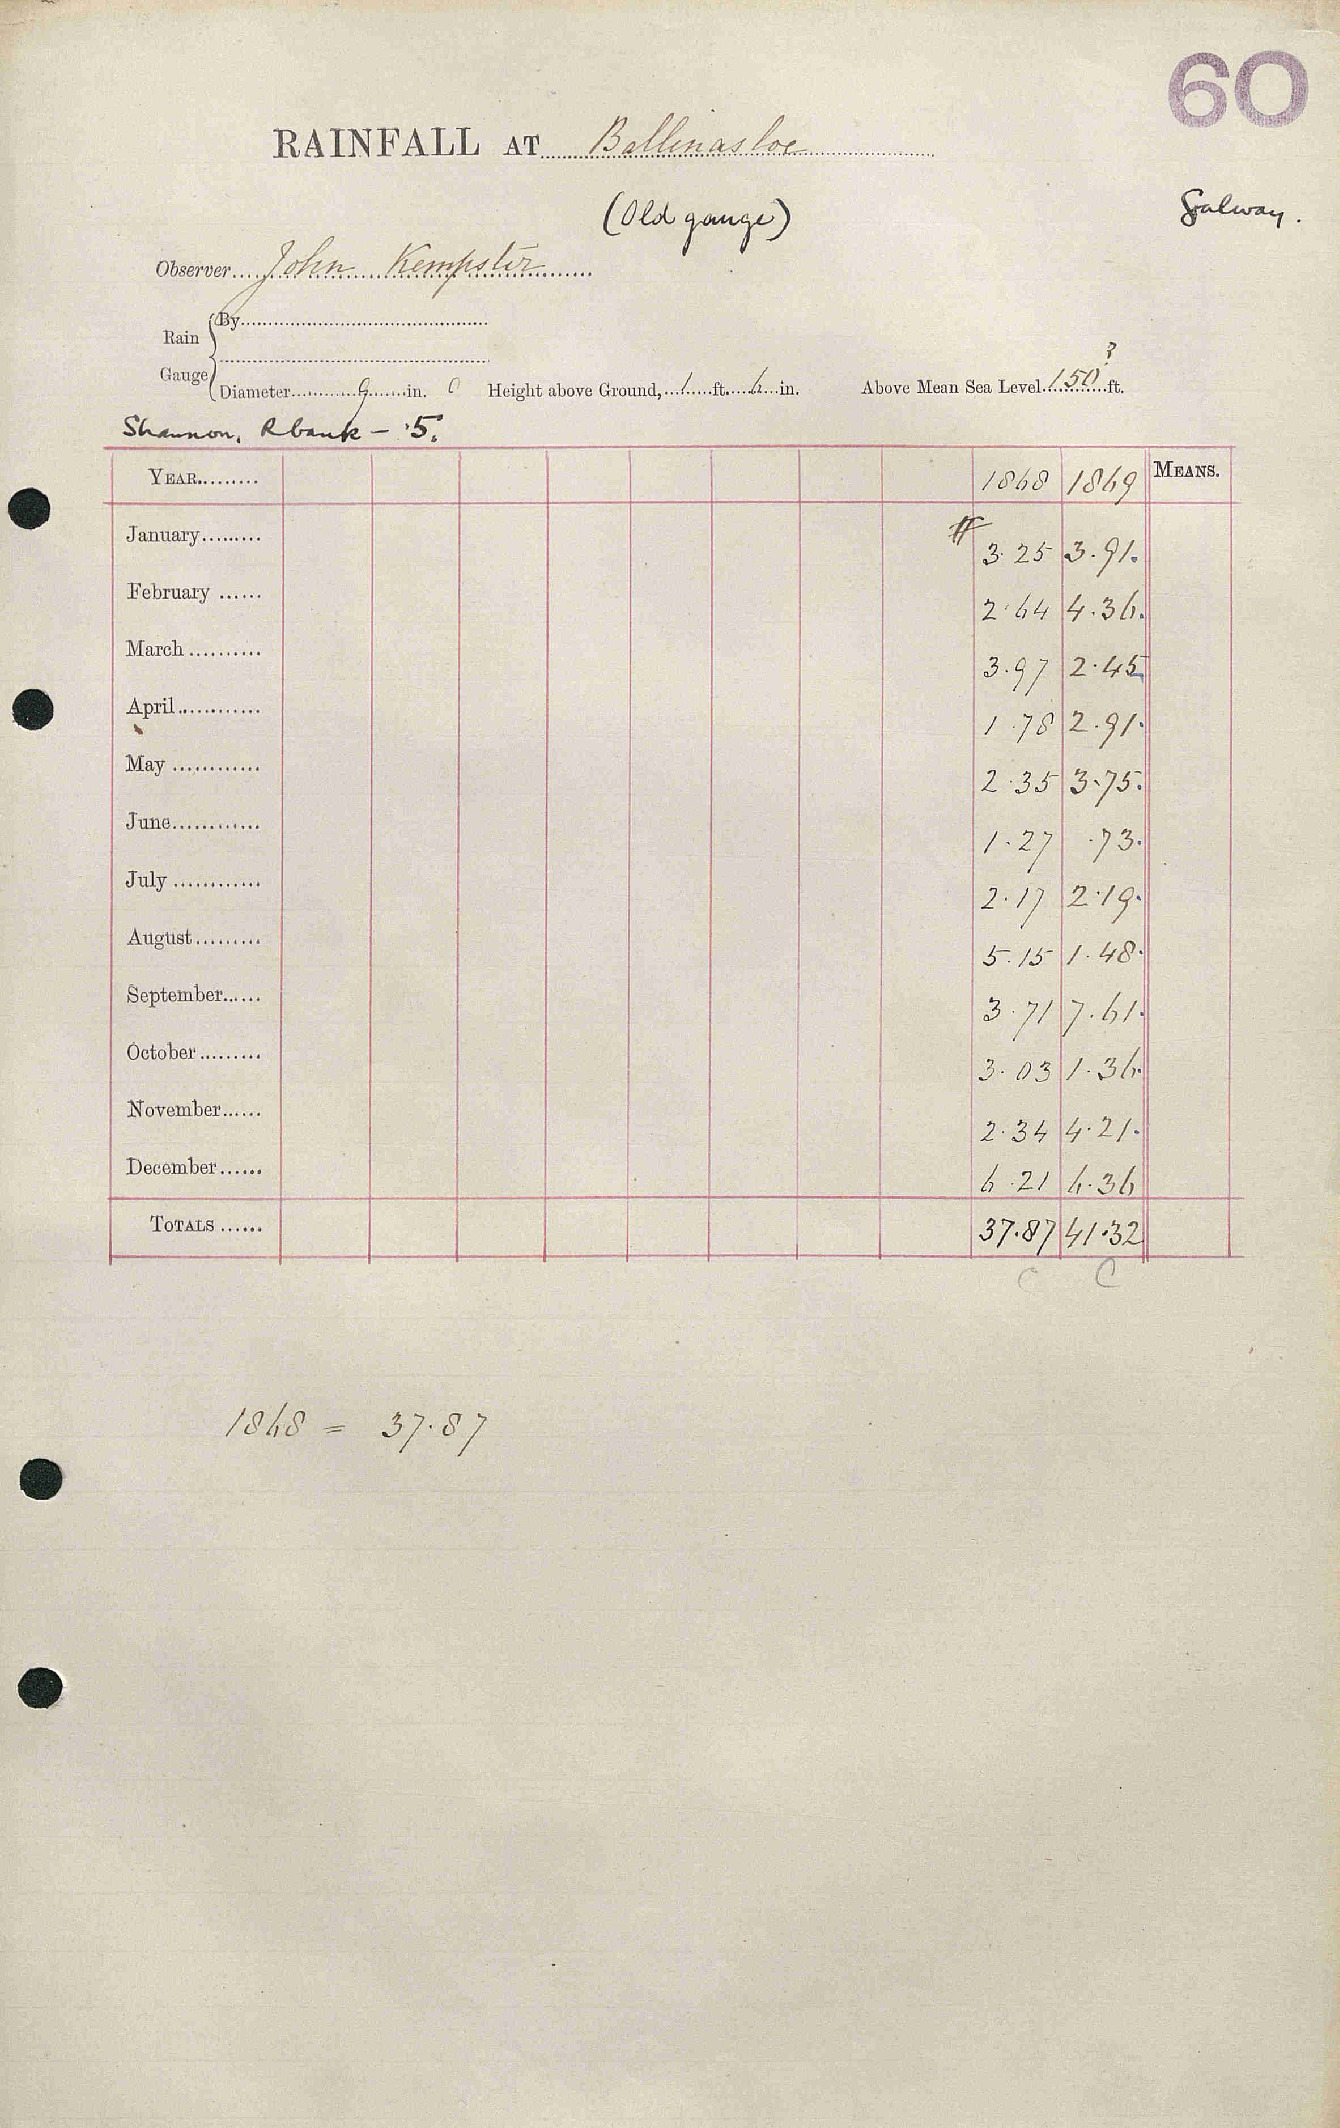 60
RAINFALL AT Ballinasloe
(Old gauge)
Galway.
Observer John Kempster
Rain Gauge
By
Diameter 9 in. O Height above Ground, 1 ft. 6 in. Above Mean Sea Level 150 ft.
?
Shannon, R bank - 5.
YEAR 1868 1869 MEANS.
January 3.25 3.91.
February 2.64 4.36.
March 3.97 2.45
April 1.78 2.91.
May 2.35 3.75.
June 1.27 .73.
July 2.17 2.19.
August 5.15 1.48.
September 3.71 7.61.
October 3.03 1.36.
November 2.34 4.21.
December 6.21 6.36
TOTALS 37.87 41.32
C C
1868 = 37.87